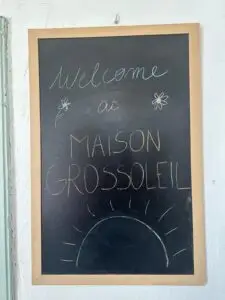 Welcome
at
MAISON
GROSSOLEIL